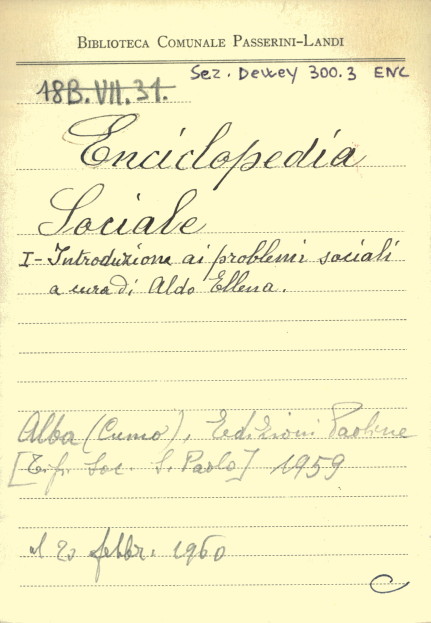 BIBLIOTECA COMUNALE PASSERINI-LANDI
Sez. Dewey 300.3 ENC
18B.VII.31.
Enciclopedia
Sociale
I - Introduzione ai problemi sociali
a cura di Aldo Ellena.
Alba (Cuneo), Edizioni Paoline
[Tip. Soc. S. Paolo] 1959
febbr. 1960